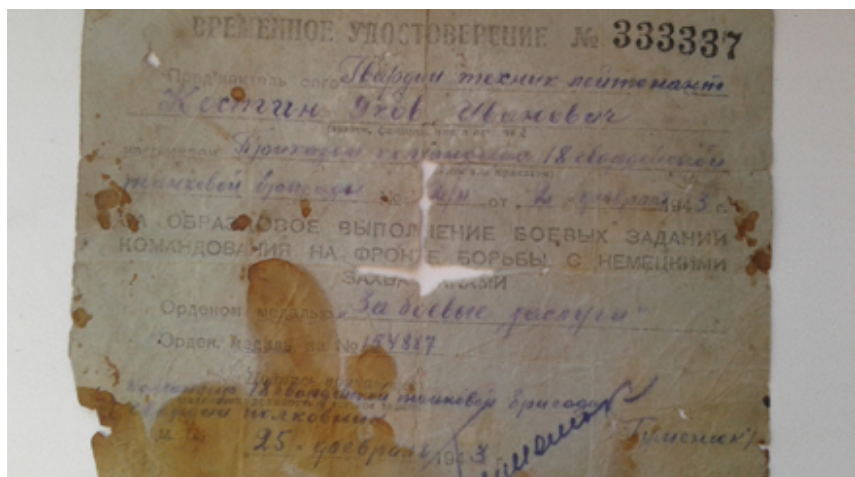 ВРЕМЕННОЕ УДОСТОВЕРЕНИЕ № 333337
Пред'явитель сего Гвардии техник лейтенант
Костин Яков Иванович
награжден Приказом 18 гвардейской
танковой бригады № от 2 февраля 1943 г.
ЗА ОБРАЗЦОВОЕ ВЫПОЛНЕНИЕ БОЕВЫХ ЗАДАНИЙ
КОМАНДОВАНИЯ НА ФРОНТЕ БОРЬБЫ С НЕМЕЦКИМИ
ЗАХВАТЧИКАМИ
Орденом медалью „За боевые заслуги"
Орден, медаль за № 154887
Командир 18 гвардейской танковой бригады
гвардии полковник
25 февраля 1943 Гуменюк